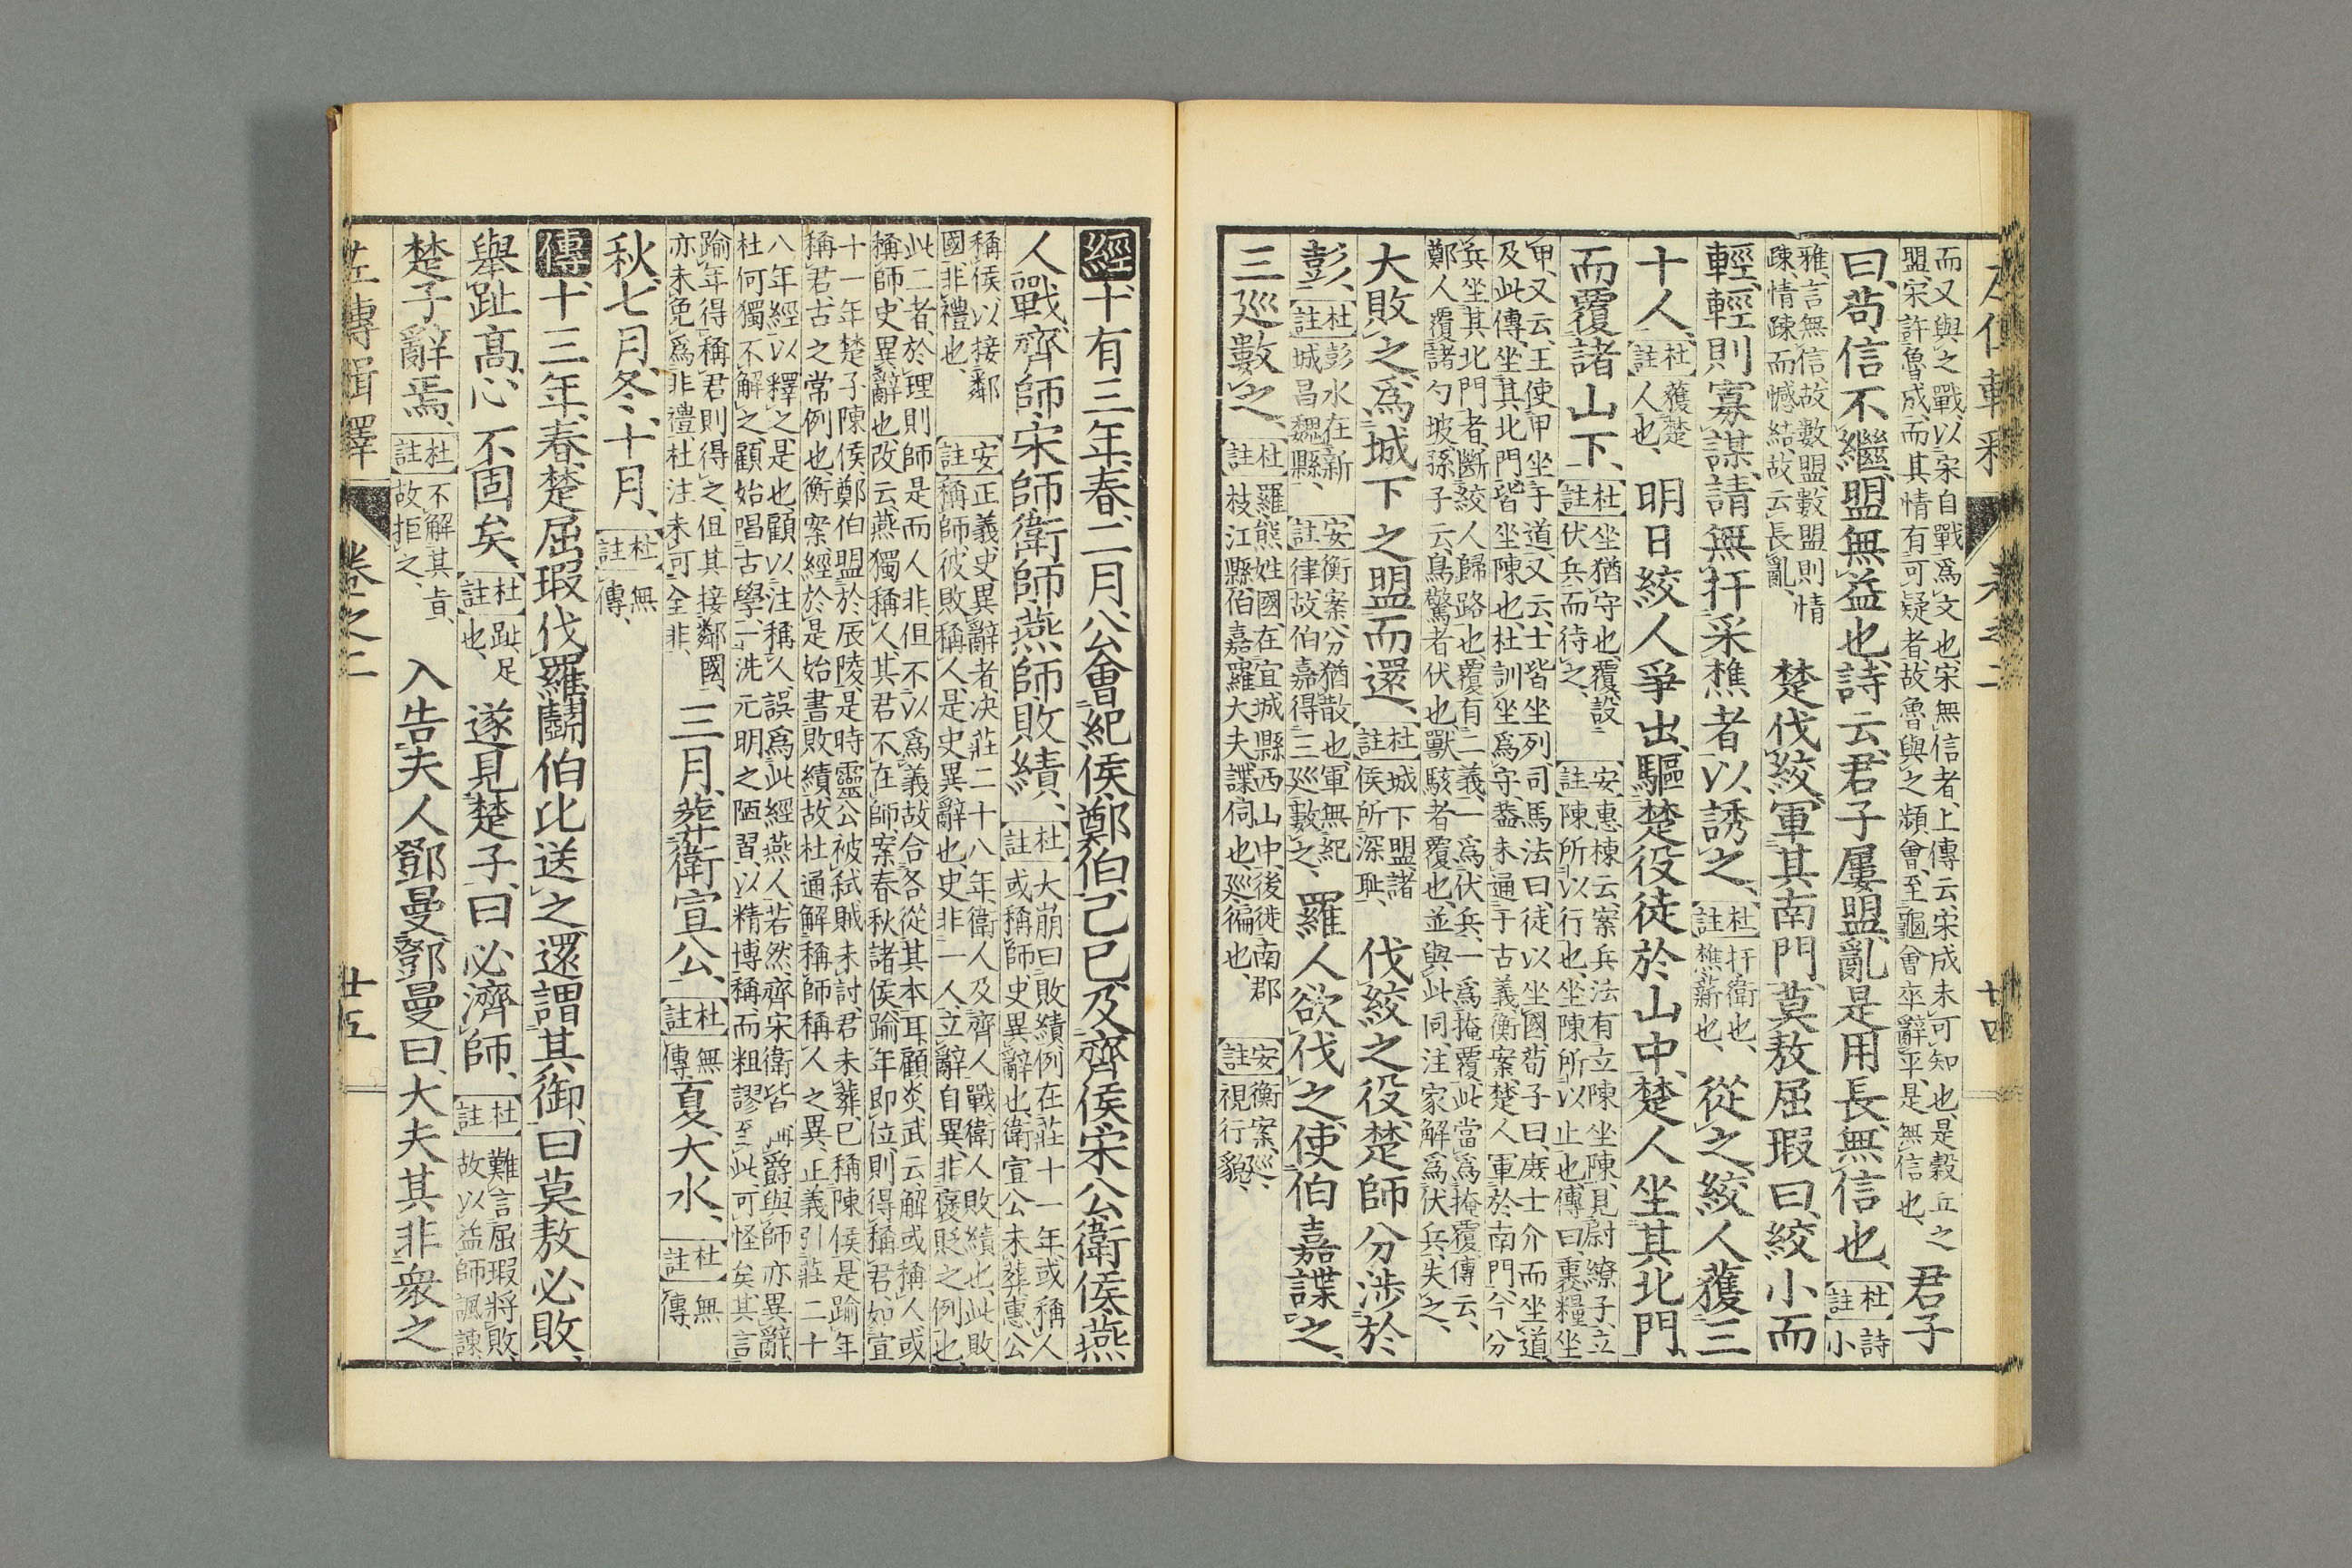 左傳輯釋 卷之二 廿四
而又與之戰、以宋自戰爲文也、宋無信者、上傳云、宋成未可知也、是穀丘之
盟、宋許魯成、而其情有可疑者、故魯與之頻會、至龜會卒辭平、是無信也、
君子
曰、苟信不繼、盟無益也、詩云、君子屢盟、亂是用長、無信也、
杜註 詩小
雅、言無信、故數盟、數盟則情
疎、情疎而憾結、故云長亂、
楚伐絞、軍其南門、莫敖屈瑕曰、絞小而
輕、輕則寡謀、請無扞采樵者、以誘之、
杜註 扞衛也、
樵薪也、
從之、絞人獲三
十人、
杜註 獲楚
人也、
明日絞人爭出、驅楚役徒於山中、楚人坐其北門、
而覆諸山下、
杜註 坐猶守也、覆設
伏兵而待之、
安註 惠棟云、案兵法有立陳坐陳、見尉繚子、立
陳所以行也、坐陳所以止也、傳曰、裹糧坐
甲、又云、王使甲坐于道、又云、士皆坐列、司馬法曰、徒以坐國、荀子曰、庶士介而坐道、
及此傳、坐其北門、皆坐陳也、杜訓坐爲守、蓋未通于古義、衡案、楚人軍於南門、今分
兵坐其北門者、斷絞人歸路也、覆有二義、一爲伏兵、一爲掩覆、此當爲掩覆、傳云、
鄭人覆諸勺坡、孫子云、鳥驚者伏也、獸駭者覆也、並與此同、注家解爲伏兵、失之、
大敗之、爲城下之盟而還、
杜註 城下盟、諸
侯所深恥、
伐絞之役、楚師分涉於
彭、
杜註 彭水在新
城昌魏縣、
安註 衡案、分猶散也、軍無紀
律、故伯嘉得三巡數之、
羅人欲伐之、使伯嘉諜之、
三巡數之、
杜註 羅熊姓國、在宜城縣西山中、後徙南郡
枝江縣、伯嘉羅大夫、諜伺也、巡徧也、
安註 衡案、巡、
視行貌、
經 十有三年、春、二月、公會紀侯鄭伯、己巳、及齊侯宋公衛侯燕
人戰、齊師宋師衛師燕師敗績、
杜註 大崩曰敗績、例在莊十一年、或稱人
或稱師、史異辭也、衛宣公未葬、惠公
稱侯以接鄰
國、非禮也、
安註 正義、史異辭者、決莊二十八年、衛人及齊人戰、衛人敗績也、此敗
稱師、彼敗稱人、是史異辭也、史非一人、立辭自異、非褒貶之例也、
此二者、於理則師是而人非、但不以爲義、故合各從其本耳、顧炎武云、解或稱人或
稱師、史異辭也、改云、燕獨稱人、其君不在師、案春秋諸侯踰年即位、則得稱君、如宣
十一年楚子陳侯鄭伯盟於辰陵、是時靈公被弑、賊未討、君未葬、已稱陳侯、是踰年
稱君、古之常例也、衡案、經於是始書敗績、故杜通解稱師稱人之異、正義引莊二十
八年經以釋之、是也、顧以注稱人、誤爲此經燕人、若然、齊宋衛皆爵、與師亦異辭、
杜何獨不解之、顧始唱古學、一洗元明之陋習、以精博稱、而粗謬至此、可怪矣、其言
踰年得稱君則得之、但其接鄰國、
亦未免爲非禮、杜注未可全非、
三月、葬衛宣公、
杜註 無
傳、
夏、大水、
杜註 無
傳、
秋、七月、冬、十月、
杜註 無
傳、
傳 十三年、春、楚屈瑕伐羅、鬪伯比送之、還謂其御曰、莫敖必敗、
舉趾高、心不固矣、
杜註 趾足
也、
遂見楚子曰、必濟師、
杜註 難言屈瑕將敗、
故以益師諷諫、
楚子辭焉、
杜註 不解其旨、
故拒之、
入告夫人鄧曼、鄧曼曰、大夫其非衆之
左傳輯釋 卷之二 廿五